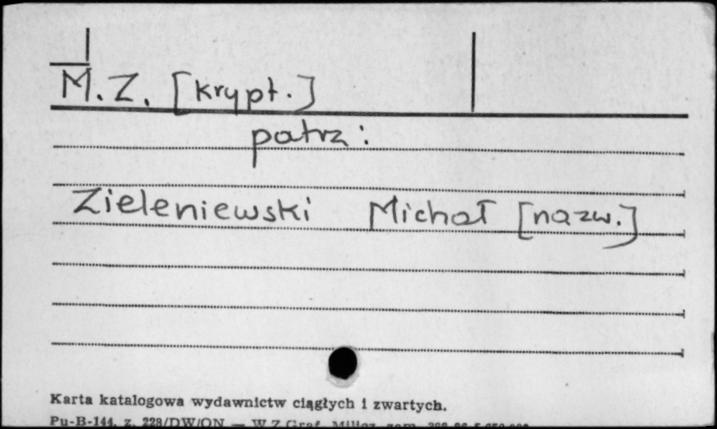 M. Z. [krypt.]
patrz:
Zieleniewski Michał [nazw.]
Karta katalogowa wydawnictw ciągłych i zwartych.
Pu-B-144, z. 228/DW/ON — W Z Graf. Milicz, zam.